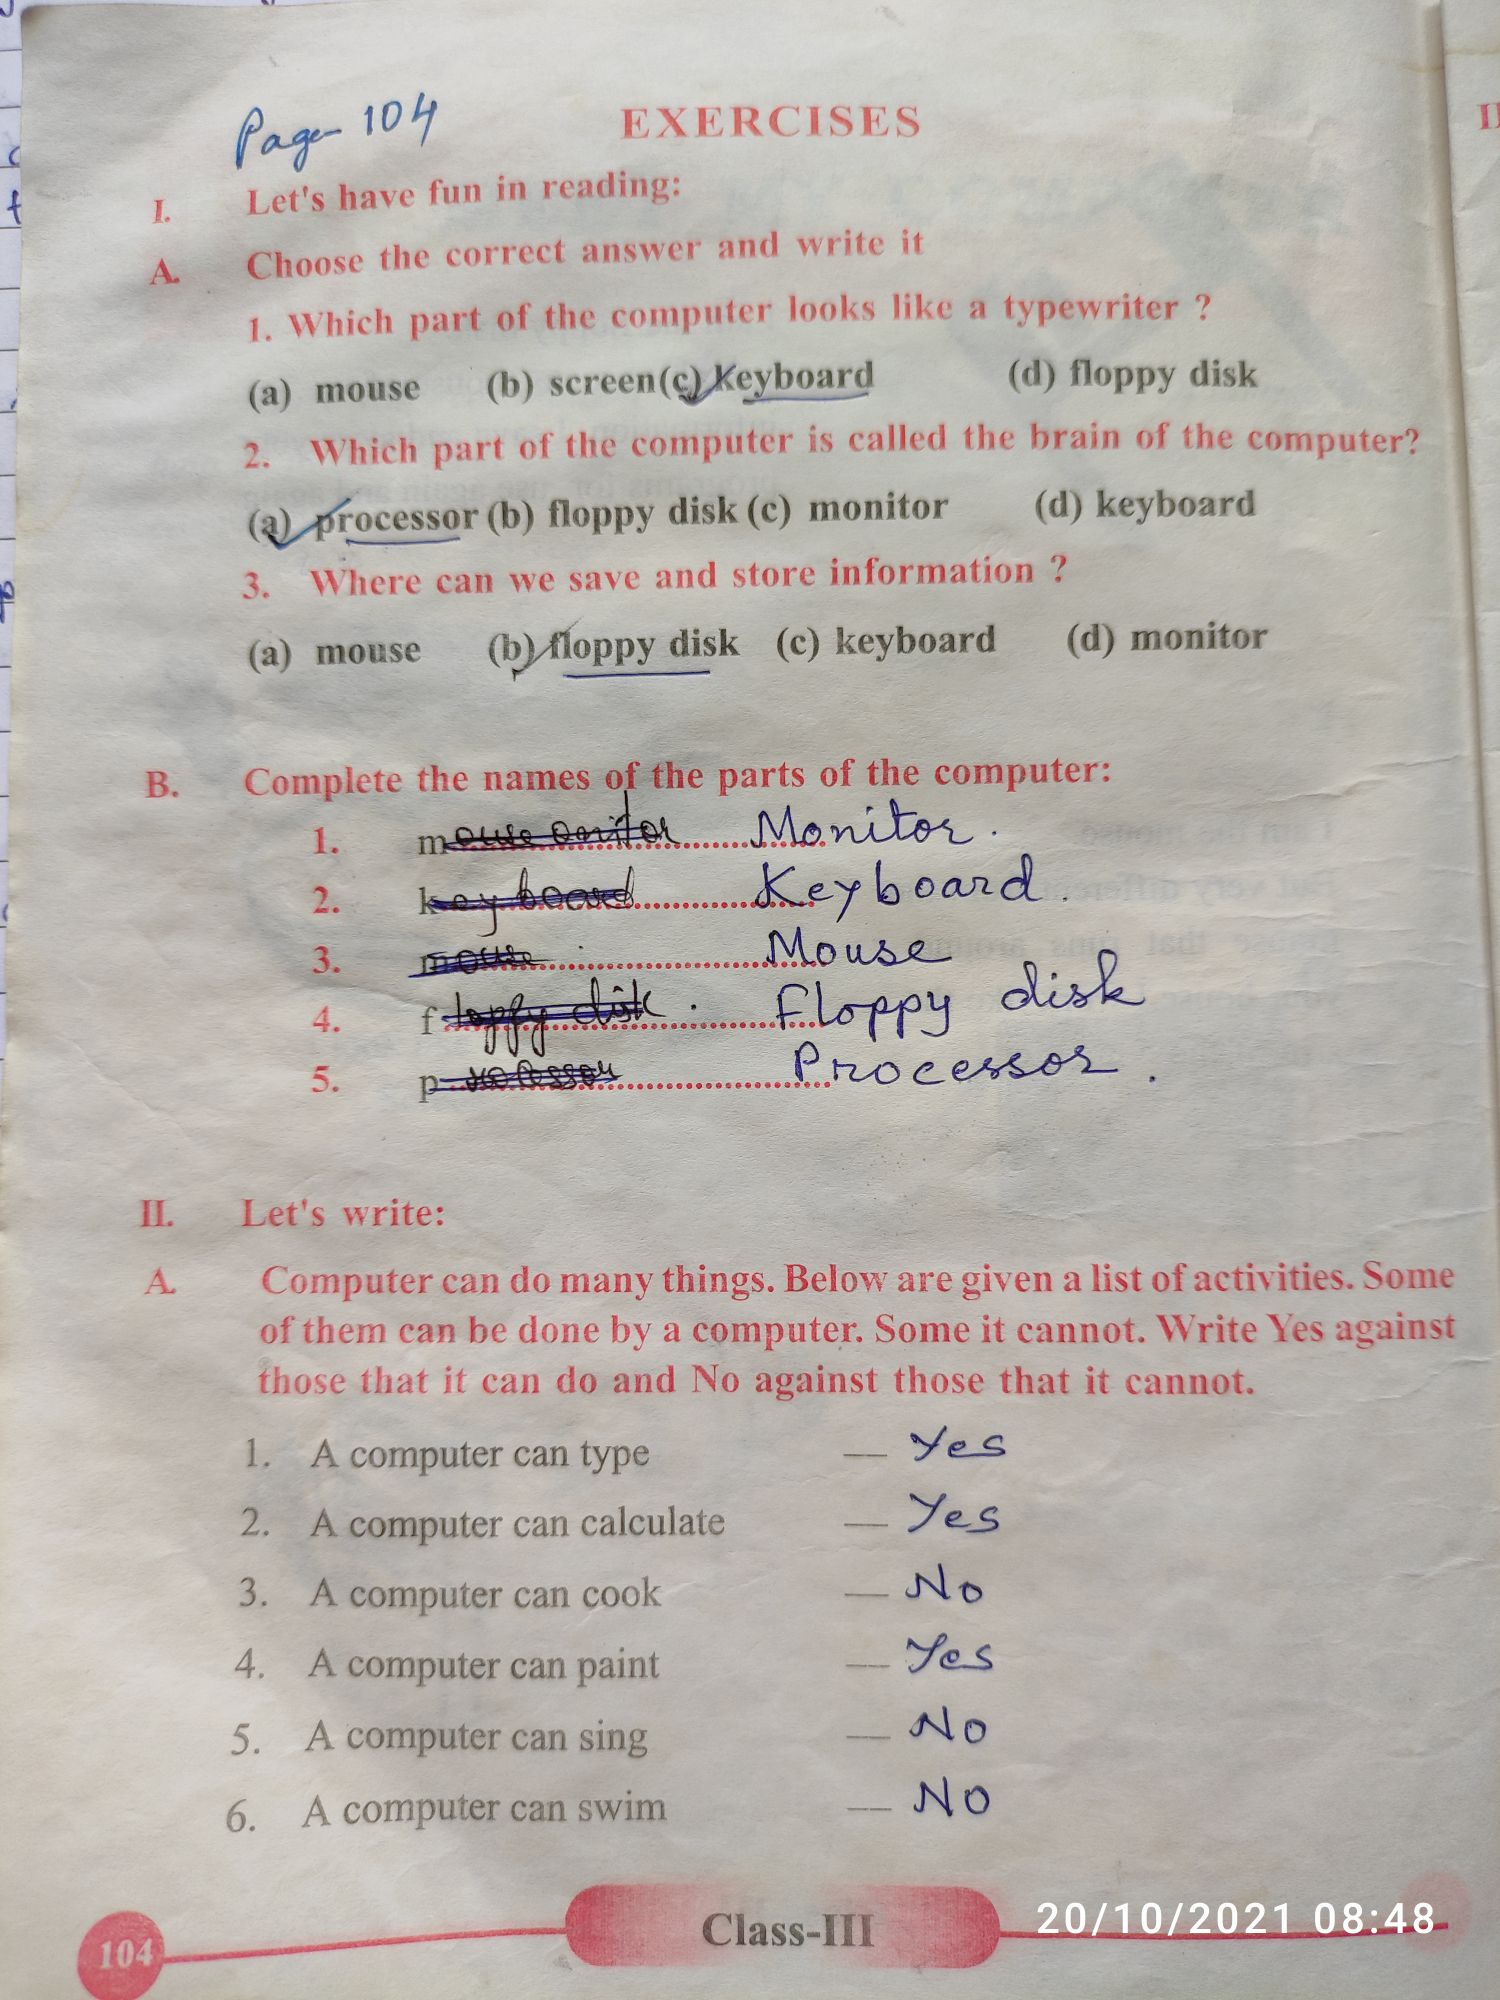 Page 104
EXERCISES
I. Let's have fun in reading:
A. Choose the correct answer and write it
1. Which part of the computer looks like a typewriter ?
(a) mouse (b) screen (c) Keyboard (d) floppy disk
2. Which part of the computer is called the brain of the computer?
(a) processor (b) floppy disk (c) monitor (d) keyboard
3. Where can we save and store information ?
(a) mouse (b) floppy disk (c) keyboard (d) monitor
B. Complete the names of the parts of the computer:
1. mouse onitor Monitor.
2. key board Keyboard.
3. mouse Mouse
4. floppy disk. Floppy disk
5. processor Processor.
II. Let's write:
A. Computer can do many things. Below are given a list of activities. Some
of them can be done by a computer. Some it cannot. Write Yes against
those that it can do and No against those that it cannot.
1. A computer can type — Yes
2. A computer can calculate — Yes
3. A computer can cook — No
4. A computer can paint — Yes
5. A computer can sing — No
6. A computer can swim — No
104 Class-III 20/10/2021 08:48